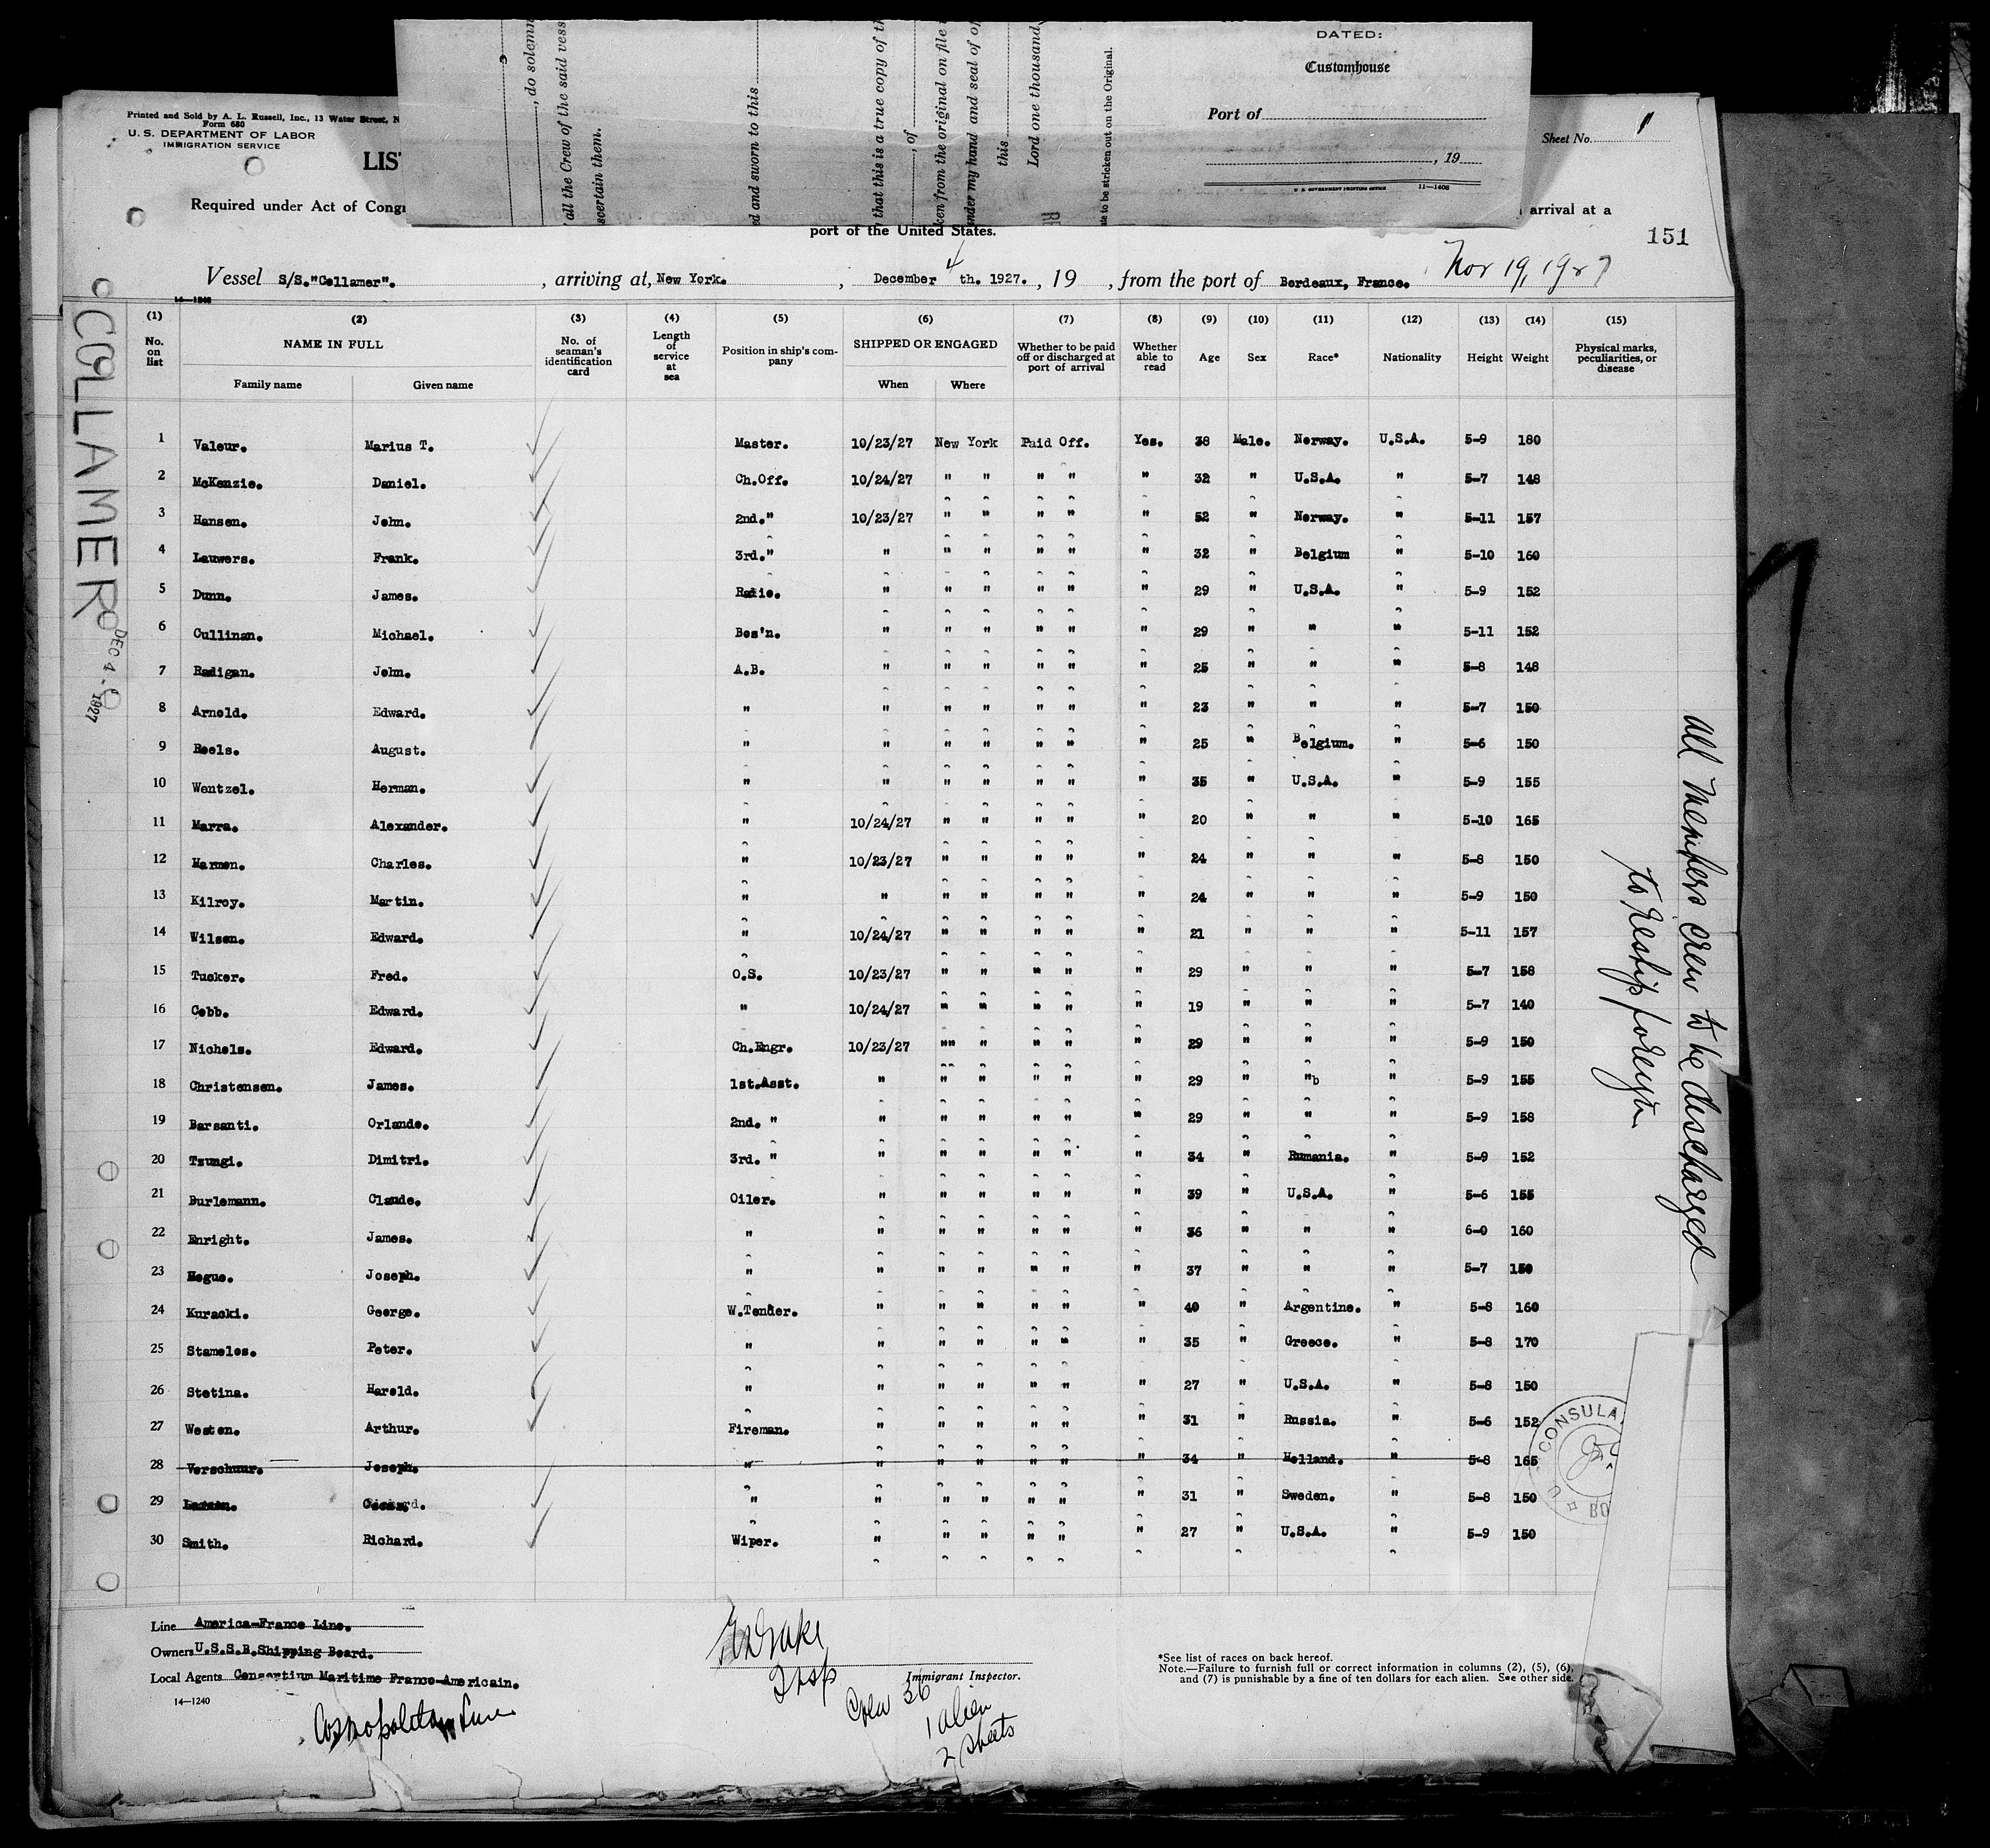 DATED:
Customhouse
Port of
, 19
U. S. GOVERNMENT PRINTING OFFICE 11—1408
, do solemn
all the Crew of the said vess
scertain them.
d and sworn to this
that this is a true copy of th
, of
ken from the original on file
nder my hand and seal of of
this
Lord one thousand
to be stricken out on the Original.
Printed and Sold by A. L. Russell, Inc., 13 Water Street, N
Form 680
U. S. DEPARTMENT OF LABOR
IMMIGRATION SERVICE
LIS
Sheet No. 1
Required under Act of Congr
arrival at a
port of the United States.
151
Vessel S/S."Collamer". , arriving at, New York. , December 4 th. 1927. , 19 , from the port of Bordeaux, France. Nov 19, 1927
14—1240
(1) (2) (3) (4) (5) (6) (7) (8) (9) (10) (11) (12) (13) (14) (15)
No. on list NAME IN FULL No. of seaman's identification card Length of service at sea Position in ship's company SHIPPED OR ENGAGED Whether to be paid off or discharged at port of arrival Whether able to read Age Sex Race* Nationality Height Weight Physical marks, peculiarities, or disease
Family name Given name When Where
1 Valeur. Marius T. Master. 10/23/27 New York Paid Off. Yes. 38 Male. Norway. U.S.A. 5-9 180
2 McKenzie. Daniel. Ch.Off. 10/24/27 " " " " " 32 " U.S.A. " 5-7 148
3 Hansen. John. 2nd." 10/23/27 " " " " " 52 " Norway. " 5-11 157
4 Lauwers. Frank. 3rd." " " " " " " 32 " Belgium " 5-10 160
5 Dunn. James. Radio. " " " " " " 29 " U.S.A. " 5-9 152
6 Cullinan. Michael. Bos'n. " " " " " " 29 " " " 5-11 152
7 Radigan. John. A.B. " " " " " " 25 " " " 5-8 148
8 Arnold. Edward. " " " " " " " 23 " " " 5-7 150
9 Roels. August. " " " " " " " 25 " Belgium. " 5-6 150
10 Wentzel. Herman. " " " " " " " 35 " U.S.A. " 5-9 155
11 Marra. Alexander. " 10/24/27 " " " " " 20 " " " 5-10 165
12 Harmon. Charles. " 10/23/27 " " " " " 24 " " " 5-8 150
13 Kilroy. Martin. " " " " " " " 24 " " " 5-9 150
14 Wilson. Edward. " 10/24/27 " " " " " 21 " " " 5-11 157
15 Tucker. Fred. O.S. 10/23/27 " " " " " 29 " " " 5-7 158
16 Cobb. Edward. " 10/24/27 " " " " " 19 " " " 5-7 140
17 Nichols. Edward. Ch.Engr. 10/23/27 "" " " " " 29 " " " 5-9 150
18 Christensen. James. 1st.Asst. " " " " " " 29 " "b " 5-9 155
19 Barsanti. Orlando. 2nd. " " " " " " " 29 " " " 5-9 158
20 Tzungi. Dimitri. 3rd. " " " " " " " 34 " Rumania. " 5-9 152
21 Burlemann. Claude. Oiler. " " " " " " 39 " U.S.A. " 5-6 155
22 Enright. James. " " " " " " " 36 " " " 6-0 160
23 Hogue. Joseph. " " " " " " " 37 " " " 5-7 150
24 Kuracki. George. W.Tender. " " " " " " 40 " Argentine. " 5-8 160
25 Stamelos. Peter. " " " " " " " 35 " Greece. " 5-8 170
26 Stetina. Harold. " " " " " " " 27 " U.S.A. " 5-8 150
27 Weston. Arthur. Fireman. " " " " " " 31 " Russia. " 5-6 152
28 Verschuur. Joseph. " " " " " " " 34 " Holland. " 5-8 165
29 " " " " " " " 31 " Sweden. " 5-8 150
30 Smith. Richard. Wiper. " " " " " " 27 " U.S.A. " 5-9 150
COLLAMER
DEC 4 - 1927
all members crew to be discharged
to reship foreign
CONSULA
BO
Line America-France Line.
Owners U.S.S.B.Shipping Board.
Local Agents Consortium Maritime Franco-Americain.
14—1240
Cosmopolitan Line
Drake
Insp
Immigrant Inspector.
Crew 36
1 alien
2 sheets
*See list of races on back hereof.
Note.—Failure to furnish full or correct information in columns (2), (5), (6),
and (7) is punishable by a fine of ten dollars for each alien. See other side.